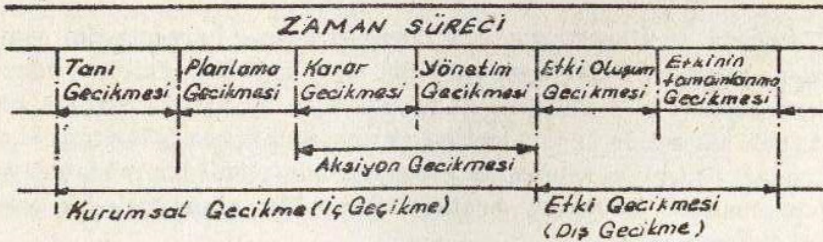 ZAMAN SÜRECİ
Tanı Gecikmesi
Planlama Gecikmesi
Karar Gecikmesi
Yönetim Gecikmesi
Etki Oluşum Gecikmesi
Etkinin tamamlanma Gecikmesi
Aksiyon Gecikmesi
Kurumsal Gecikme (İç Geçikme)
Etki Gecikmesi
(Dış Gecikme)